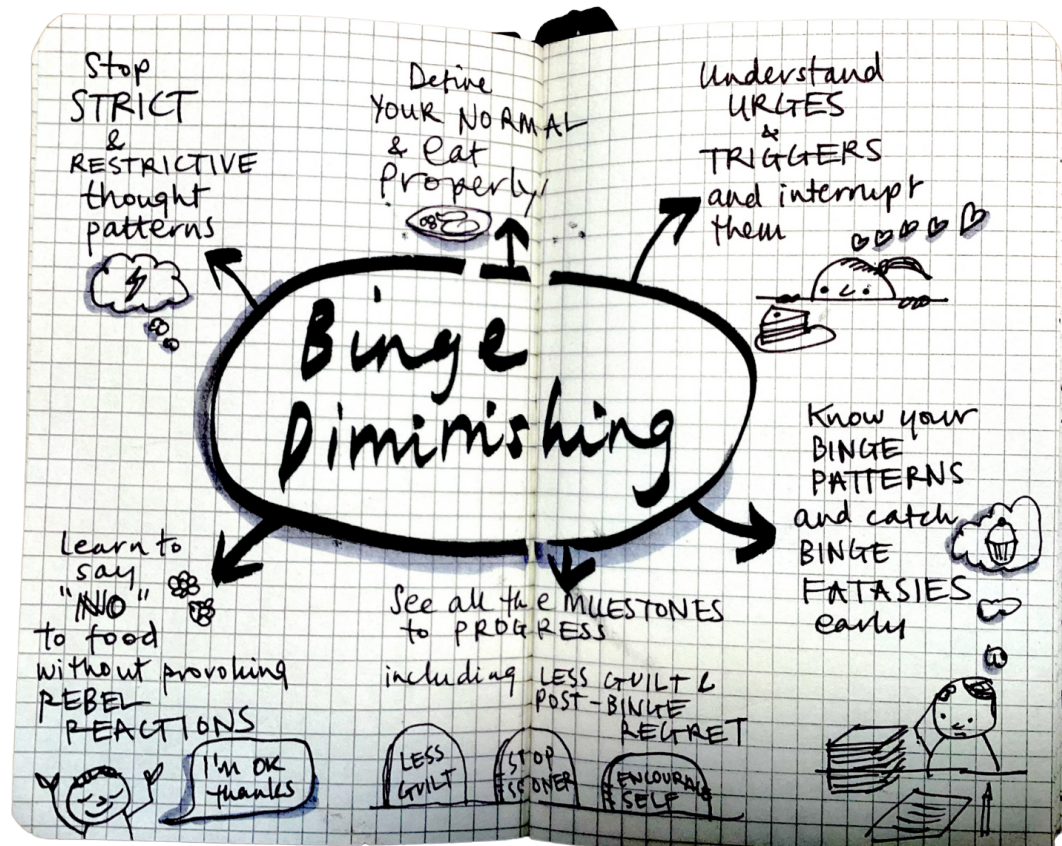 Stop
STRICT
&
RESTRICTIVE
thought
patterns
Define
YOUR NORMAL
& eat
Properly
Understand
URGES
&
TRIGGERS
and interrupt
them
Binge
Diminishing
Know your
BINGE
PATTERNS
and catch
BINGE
FATASIES
early
Learn to
say
"NO"
to food
without provoking
REBEL
REACTIONS
I'm OK
thanks
See all the MILESTONES
to PROGRESS
including LESS GUILT &
POST-BINGE
REGRET
LESS
GUILT
STOP
SOONER
ENCOURAGE
SELF